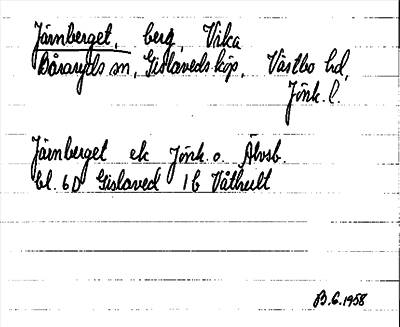 Järnberget, berg, Vika
Båraryds sn, Gislaveds köp. Västbo hd,
Jönk. l.
Järnberget ek Jönk. o. Älvsb.
bl. 6D Gislaved 1 b Våthult
B.G. 1958